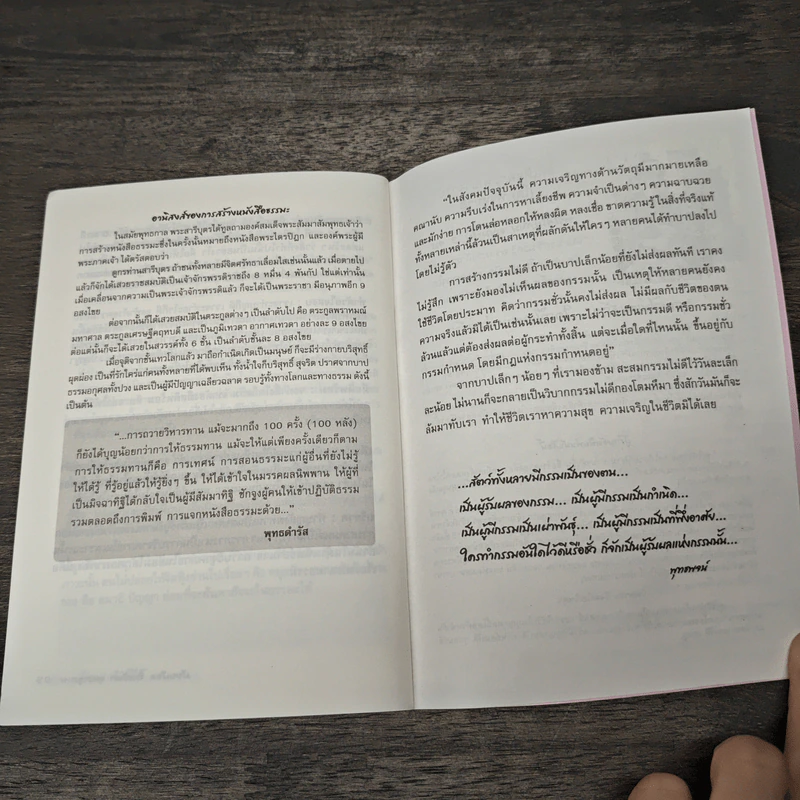 อานิสงส์ของการสร้างหนังสือธรรมะ
ในสมัยพุทธกาล พระสารีบุตรได้ทูลถามองค์สมเด็จพระสัมมาสัมพุทธเจ้าว่า
การสร้างหนังสือธรรมะซึ่งในครั้งนั้นหมายถึงหนังสือพระไตรปิฎก และองค์พระผู้มี
พระภาคเจ้า ได้ตรัสตอบว่า
ดูกรท่านสารีบุตร ถ้าชนทั้งหลายมีจิตศรัทธาเลื่อมใสเช่นนั้นแล้ว เมื่อตายไป
แล้วก็จักได้เสวยราชสมบัติเป็นเจ้าจักรพรรดิราชถึง 8 หมื่น 4 พันกัป ใช่แต่เท่านั้น
เมื่อเคลื่อนจากความเป็นพระเจ้าจักรพรรดิแล้ว ก็จะได้เป็นพระราชา มีอนุภาพอีก 9
อสงไขย
ต่อจากนั้นก็ได้เสวยสมบัติในตระกูลต่างๆ เป็นลำดับไป คือ ตระกูลพราหมณ์
มหาศาล ตระกูลเศรษฐีคฤหบดี และเป็นภูมิเทวดา อากาศเทวดา อย่างละ 9 อสงไขย
ต่อแต่นั้นก็จะได้เสวยในสวรรค์ทั้ง 6 ชั้น เป็นลำดับชั้นละ 8 อสงไขย
เมื่อจุติจากชั้นเทวโลกแล้ว มาถือกำเนิดเกิดเป็นมนุษย์ ก็จะมีร่างกายบริสุทธิ์
ผุดผ่อง เป็นที่รักใคร่แก่คนทั้งหลายที่ได้พบเห็น ทั้งน้ำใจก็บริสุทธิ์ สุจริต ปราศจากบาป
ธรรมอกุศลทั้งปวง และเป็นผู้มีปัญญาเฉลียวฉลาด รอบรู้ทั้งทางโลกและทางธรรม ดังนี้
เป็นต้น
“...การถวายวิหารทาน แม้จะมากถึง 100 ครั้ง (100 หลัง)
ก็ยังได้บุญน้อยกว่าการให้ธรรมทาน แม้จะให้แต่เพียงครั้งเดียวก็ตาม
การให้ธรรมทานก็คือ การเทศน์ การสอนธรรมะแก่ผู้อื่นที่ยังไม่รู้
ให้ได้รู้ ที่รู้อยู่แล้วให้รู้ยิ่งๆ ขึ้น ให้ได้เข้าใจในมรรคผลนิพพาน ให้ผู้ที่
เป็นมิจฉาทิฐิได้กลับใจเป็นผู้มีสัมมาทิฐิ ชักจูงผู้คนให้เข้าปฏิบัติธรรม
รวมตลอดถึงการพิมพ์ การแจกหนังสือธรรมะด้วย...”
พุทธดำรัส
“ในสังคมปัจจุบันนี้ ความเจริญทางด้านวัตถุมีมากมายเหลือ
คณานับ ความรีบเร่งในการหาเลี้ยงชีพ ความจำเป็นต่างๆ ความฉาบฉวย
และมักง่าย การโดนล่อหลอกให้หลงผิด หลงเชื่อ ขาดความรู้ ในสิ่งที่จริงแท้
ทั้งหลายเหล่านี้ล้วนเป็นสาเหตุที่ผลักดันให้ใครๆ หลายคนได้ทำบาปลงไป
โดยไม่รู้ตัว
การสร้างกรรมไม่ดี ถ้าเป็นบาปเล็กน้อยที่ยังไม่ส่งผลทันที เราคง
ไม่รู้สึก เพราะยังมองไม่เห็นผลของกรรมนั้น เป็นเหตุให้หลายคนยังคง
ใช้ชีวิตโดยประมาท คิดว่ากรรมชั่วนั้นคงไม่ส่งผล ไม่มีผลกับชีวิตของตน
ความจริงแล้วมิได้เป็นเช่นนั้นเลย เพราะไม่ว่าจะเป็นกรรมดี หรือกรรมชั่ว
ล้วนแล้วแต่ต้องส่งผลต่อผู้กระทำทั้งสิ้น แต่จะเมื่อใดที่ไหนนั้น ขึ้นอยู่กับ
กรรมกำหนด โดยมีกฎแห่งกรรมกำหนดอยู่”
จากบาปเล็กๆ น้อยๆ ที่เรามองข้าม สะสมกรรมไม่ดีไว้วันละเล็ก
ละน้อย ไม่นานก็จะกลายเป็นวิบากกรรมไม่ดีกองโตมหึมา ซึ่งสักวันมันก็จะ
ล้มมาทับเรา ทำให้ชีวิตเราหาความสุข ความเจริญในชีวิตมิได้เลย
...สัตว์ทั้งหลายมีกรรมเป็นของตน...
เป็นผู้รับผลของกรรม... เป็นผู้มีกรรมเป็นกำเนิด...
เป็นผู้มีกรรมเป็นเผ่าพันธุ์... เป็นผู้มีกรรมเป็นที่พึ่งอาศัย...
ใครทำกรรมอันใดไว้ดีหรือชั่ว ก็จักเป็นผู้รับผลแห่งกรรมนั้น...
พุทธพจน์